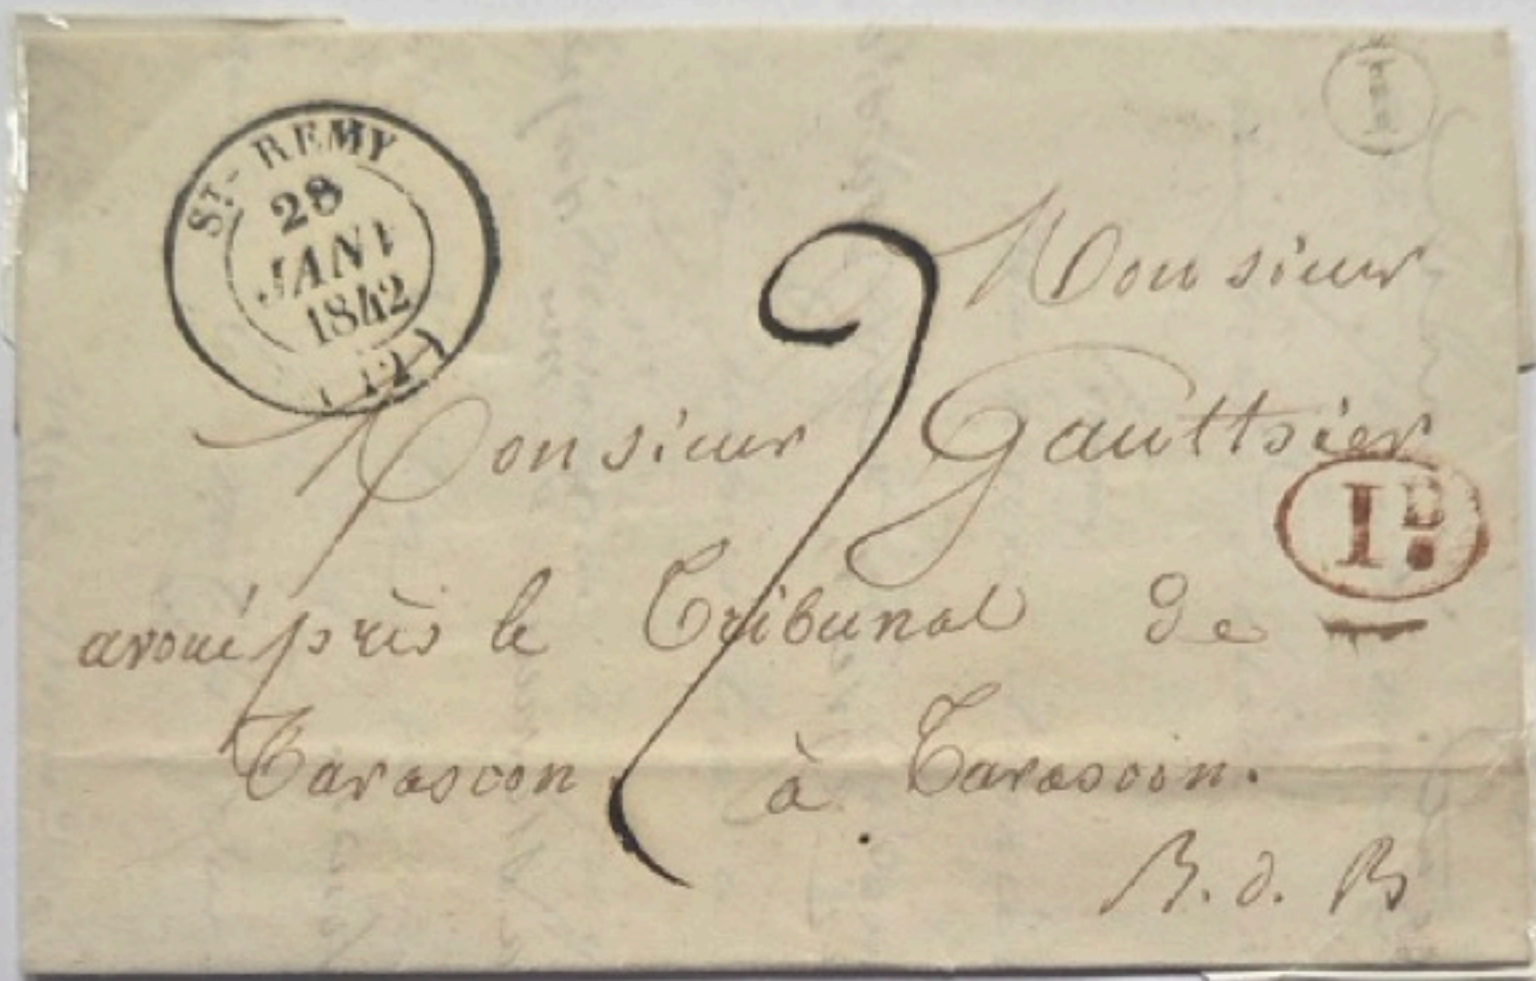 I
St. REMY
28
JANV
1842
(12)
2
Monsieur
Monsieur Gautier
1D.
avoué près le Tribunal de
Tarascon à Tarascon.
B. d. R